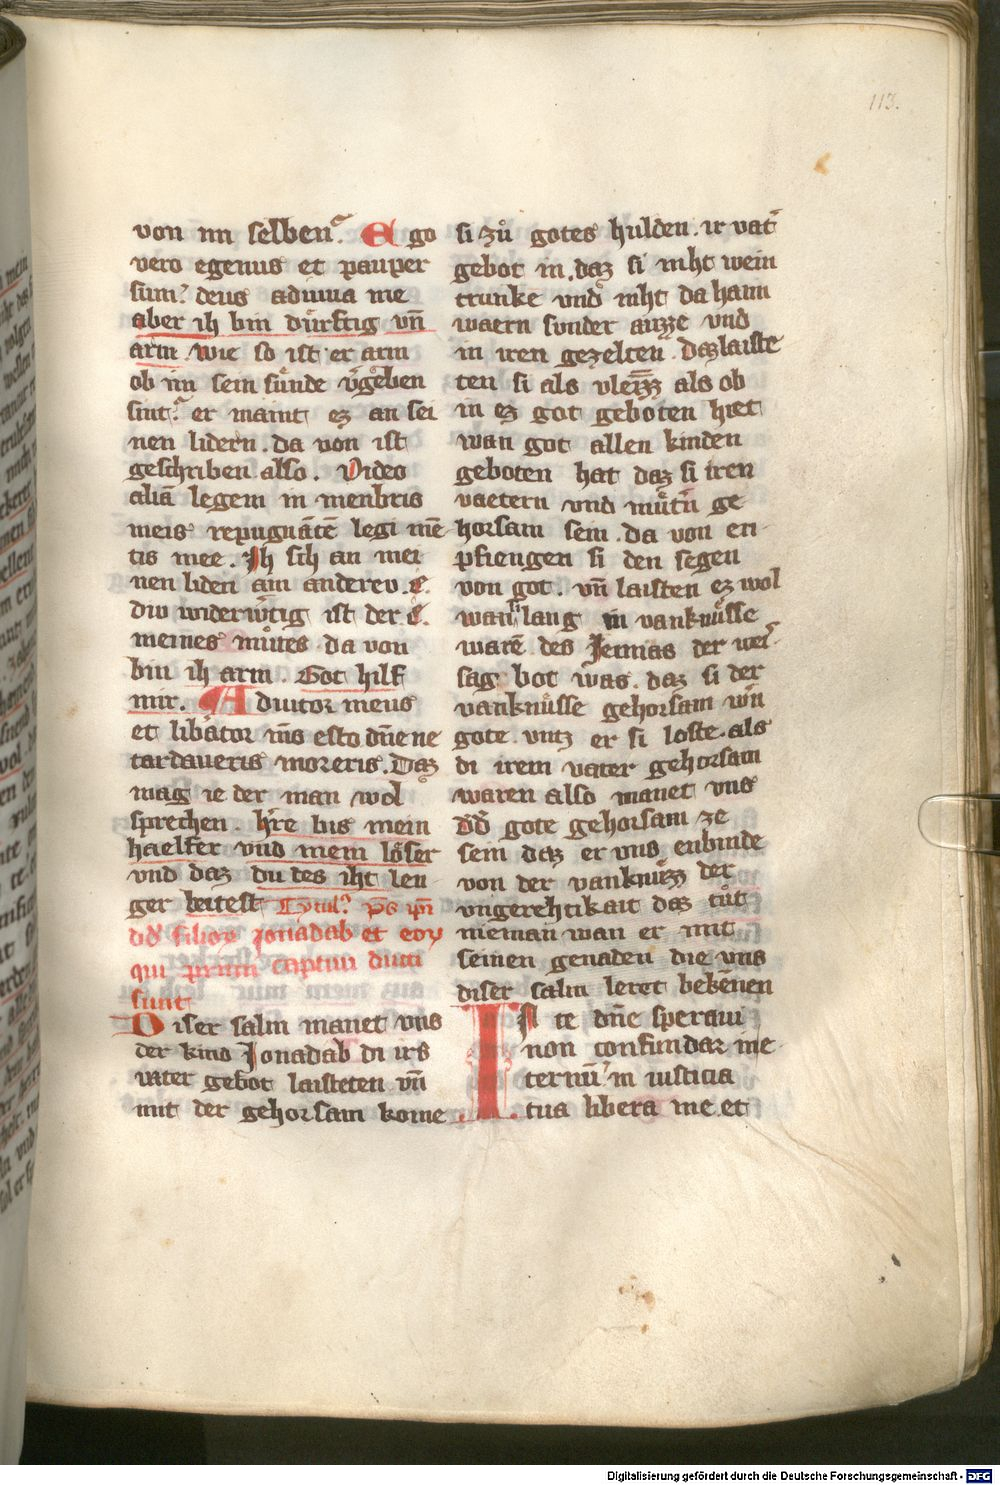 113.
von im selben. Ego
vero egenus et pauper
sum. deus adiuua me
aber ih bin dürftig vn̄
arm. wie so ist er arm
ob im sein sünde v̄geben
sint. er maint ez an sei
nen lidern. da von ist
geschriben also. Video
aliā legem in menbris
meis repugnātē legi mē
tis mee. Ih sih an mei
nen liden ain anderev. e.
div widerw̄tig ist der e.
meines můtes. da von
bin ih arm. Got hilf
mir. Adiutor meus
et libātor m̄s esto dn̄e ne
tardaueris moreris. Daz
mag ie der man wol
sprechen. h̄re bis mein
haelfer vnd mein löser
vnd daz du des iht len
ger beitest Tytul. p̄s ip̄i
dd̄ filioꝝ Jonadab et eoꝝ
qui primi captiui ducti
sunt
Diser salm manet vns
der kind Jonadab di irs
vater gebot laisteten vn̄
mit der gehorsam kome
si zů gotes hulden. ir vat̄
gebot in. daz si niht wein
trunke vnd niht da haim
waern sunder auzze vnd
in iren gezelten. daz laiste
ten si als vleizz als ob
in ez got geboten hiet
wan got allen kinden
geboten hat daz si iren
vaetern vnd můt̄n ge
horsam sein. da von en
pfiengen si den segen
von got. vn̄ laisten ez wol
wan lang in vanknüsse
warē. des Jermias der wei
sag bot was. daz si der
vanknüsse gehorsam w̄n
gote. vntz er si loste. als
di irem vater gehorsam
waren also manet vns
dd̄ gote gehorsam ze
sein daz er vns enbinde
von der vanknüzz der
vngerehtikait daz tůt
nieman wan er mit
seinen genaden die vns
diser salm leret bekēnen
In te dn̄e speraui
non confundar in e
ternū. in iusticia
tua libera me et
Digitalisierung gefördert durch die Deutsche Forschungsgemeinschaft - DFG